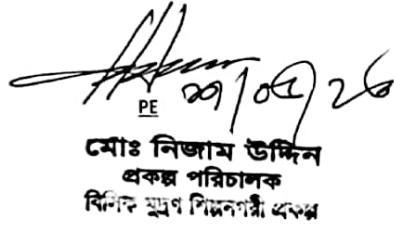 PE ২৭/০৫/২৬
মোঃ নিজাম উদ্দিন
প্রকল্প পরিচালক
বিসিক মুদ্রণ শিল্পনগরী প্রকল্প